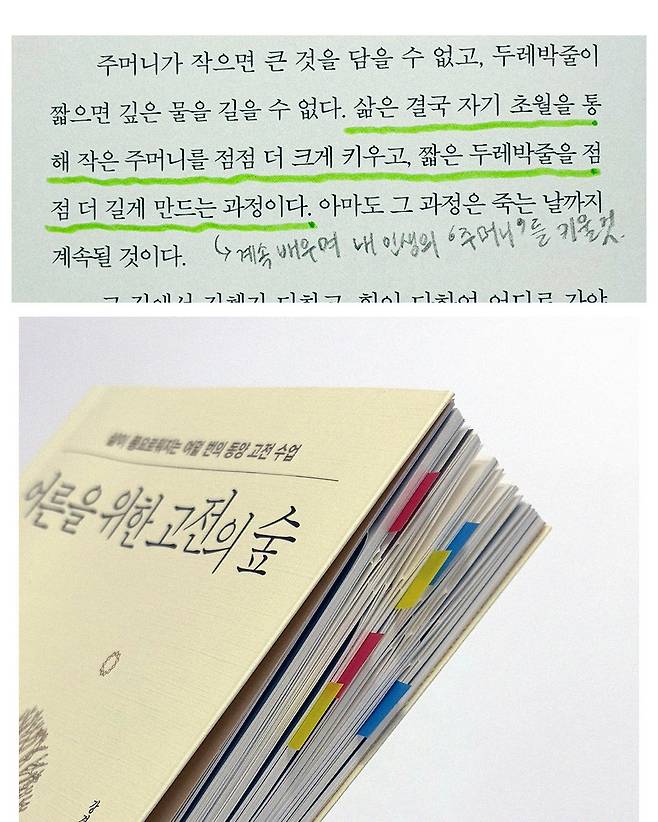 주머니가 작으면 큰 것을 담을 수 없고, 두레박줄이
짧으면 깊은 물을 길을 수 없다. 삶은 결국 자기 초월을 통
해 작은 주머니를 점점 더 크게 키우고, 짧은 두레박줄을 점
점 더 길게 만드는 과정이다. 아마도 그 과정은 죽는 날까지
계속될 것이다.
↳ 계속 배우며 내 인생의 '주머니'를 키울것.
삶이 풍요로워지는 여덟 번의 동양 고전 수업
어른을 위한 고전의 숲